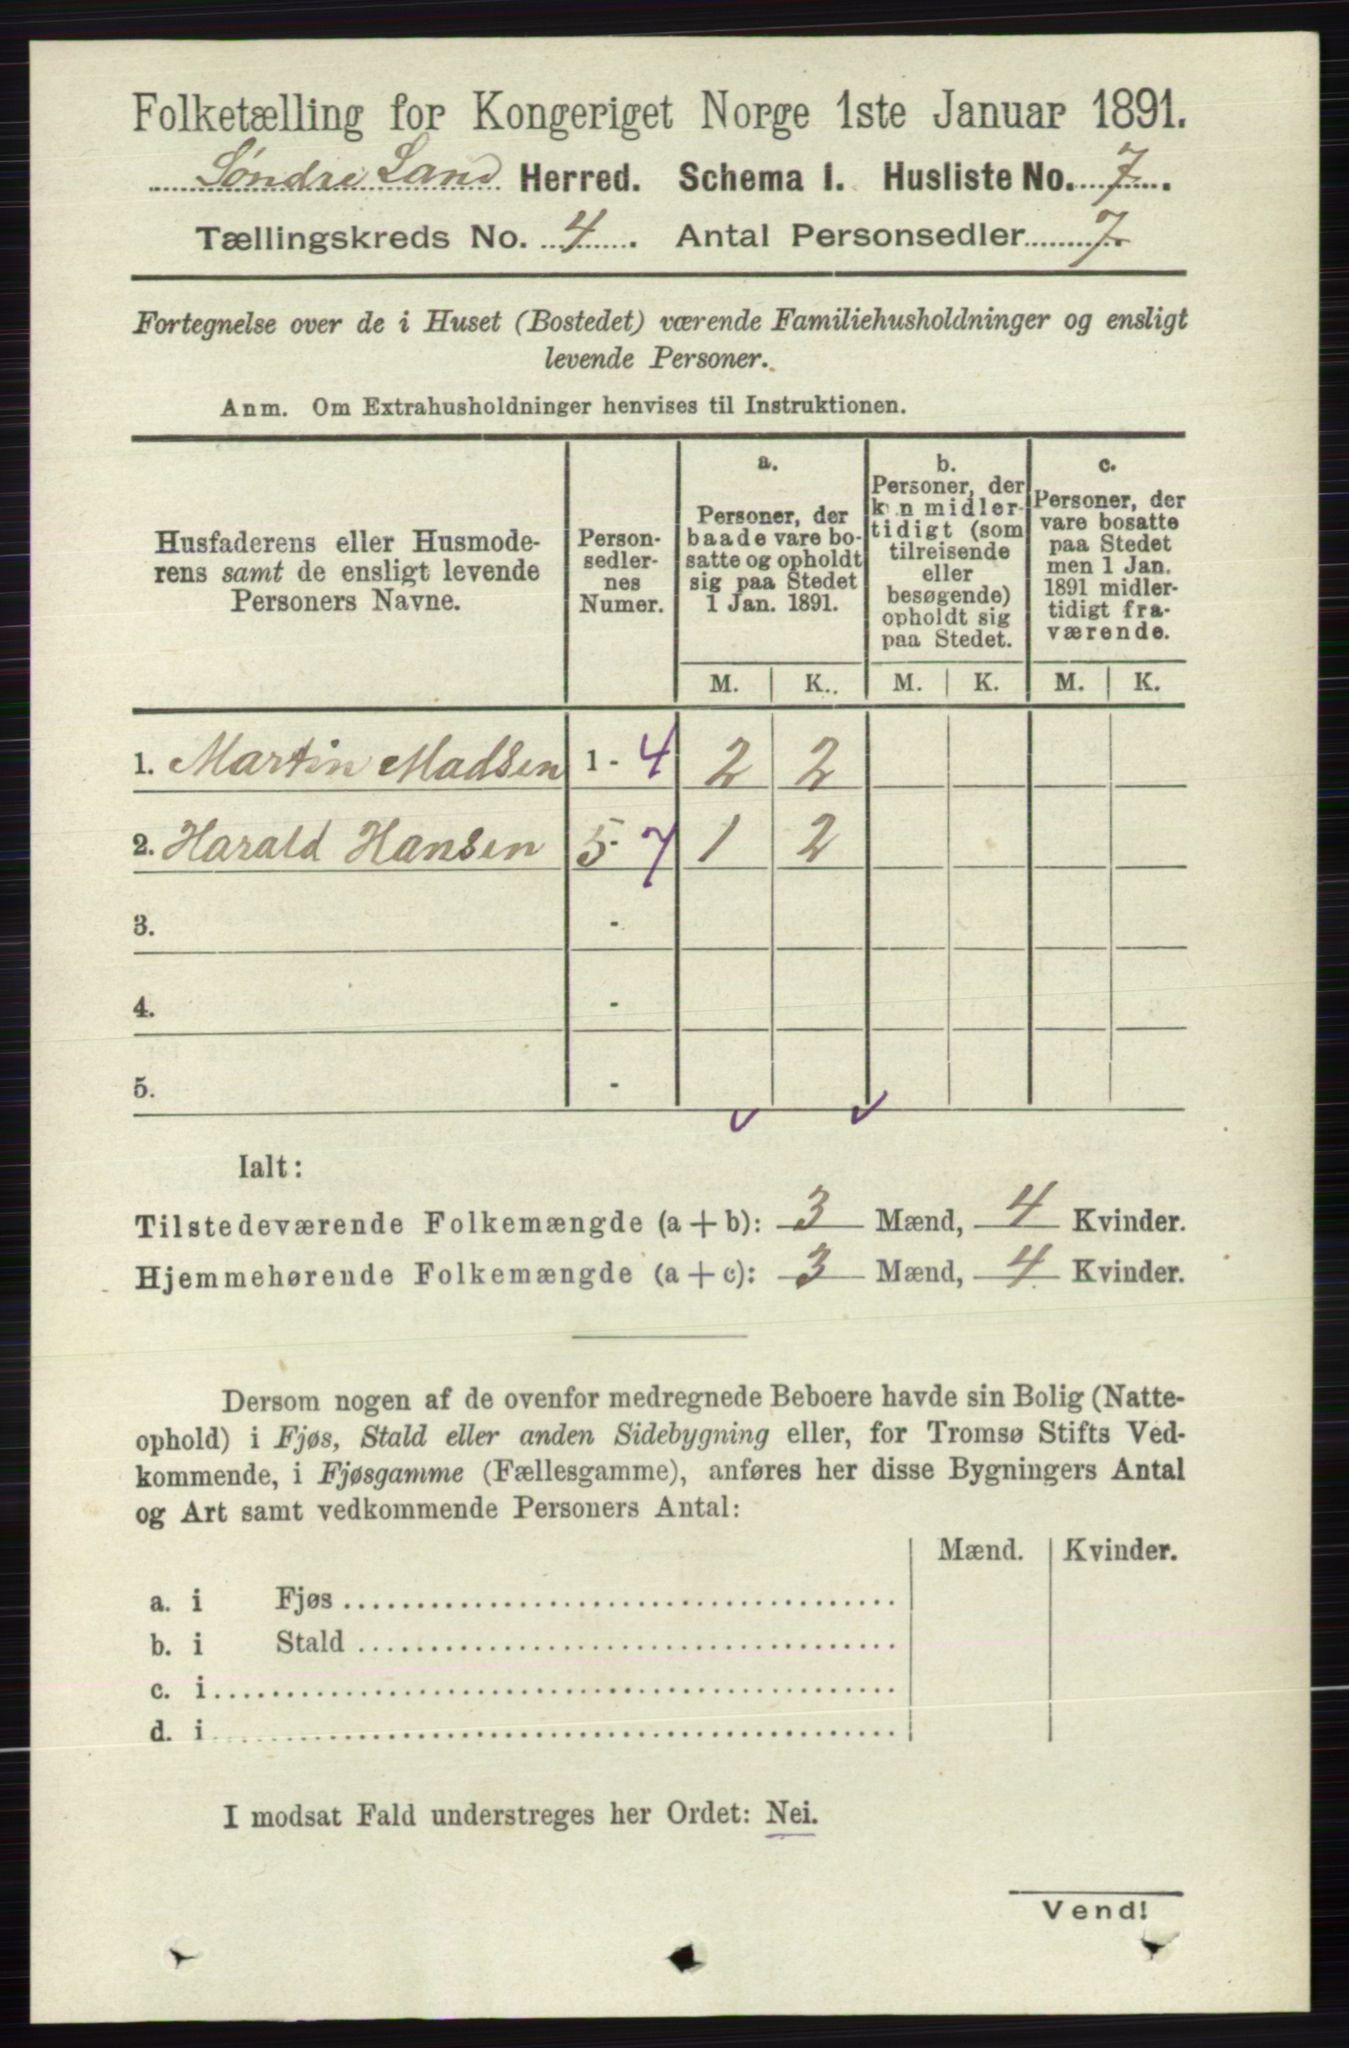 Folketælling for Kongeriget Norge 1ste Januar 1891.
Søndre Land Herred. Schema I. Husliste No. 7.
Tællingskreds No. 4. Antal Personsedler 7.
Fortegnelse over de i Huset (Bostedet) værende Familiehusholdninger og ensligt
levende Personer.
Anm. Om Extrahusholdninger henvises til Instruktionen.
Husfaderens eller Husmode-
rens samt de ensligt levende
Personers Navne.
Person-
sedler-
nes
Numer.
a.
Personer, der
baade vare bo-
satte og opholdt
sig paa Stedet
1 Jan. 1891.
b.
Personer, der
kun midler-
tidigt (som
tilreisende
eller
besøgende)
opholdt sig
paa Stedet.
c.
Personer, der
vare bosatte
paa Stedet
men 1 Jan.
1891 midler-
tidigt fra-
værende.
M. K. M. K. M. K.
1. Martin Madsen 1 - 4 2 2
2. Harald Hansen 5 - 7 1 2
3. -
4. -
5. -
Ialt:
Tilstedeværende Folkemængde (a + b): 3 Mænd, 4 Kvinder.
Hjemmehørende Folkemængde (a + c): 3 Mænd, 4 Kvinder.
Dersom nogen af de ovenfor medregnede Beboere havde sin Bolig (Natte-
ophold) i Fjøs, Stald eller anden Sidebygning eller, for Tromsø Stifts Ved-
kommende, i Fjøsgamme (Fællesgamme), anføres her disse Bygningers Antal
og Art samt vedkommende Personers Antal:
Mænd. Kvinder.
a. i Fjøs
b. i Stald
c. i
d. i
I modsat Fald understreges her Ordet: Nei.
Vend!